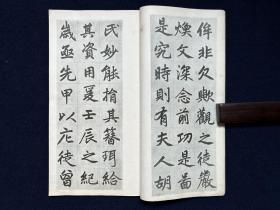 侔非欠歟觀之徒嚴
煥文深念前功是啚
是究時則有夫人胡
氏妙能捐其簪珥給
其資用爰壬辰之紀
歲亟先甲以庀徒曾